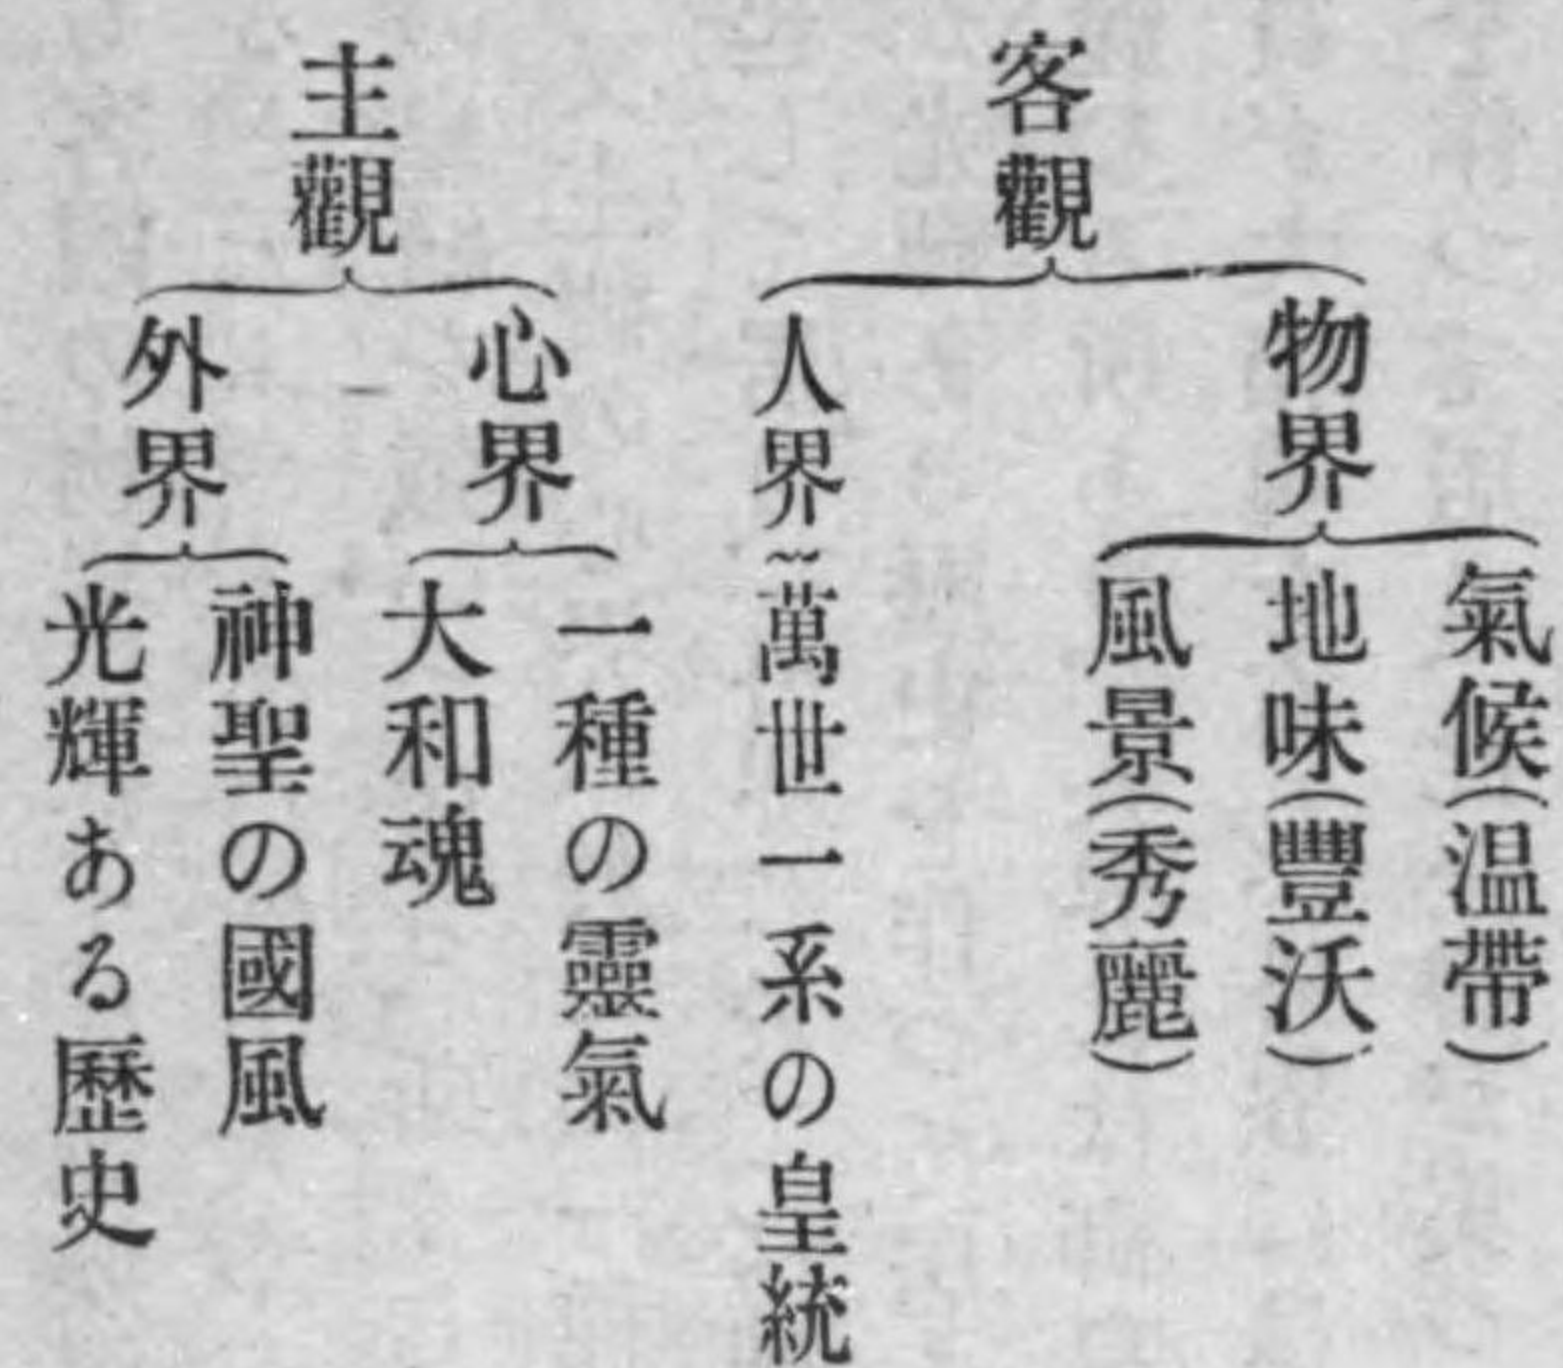 客觀
物界
氣候(温帶)
地味(豐沃)
風景(秀麗)
人界~萬世一系の皇統
主觀
心界
一種の靈氣
大和魂
外界
神聖の國風
光輝ある歷史